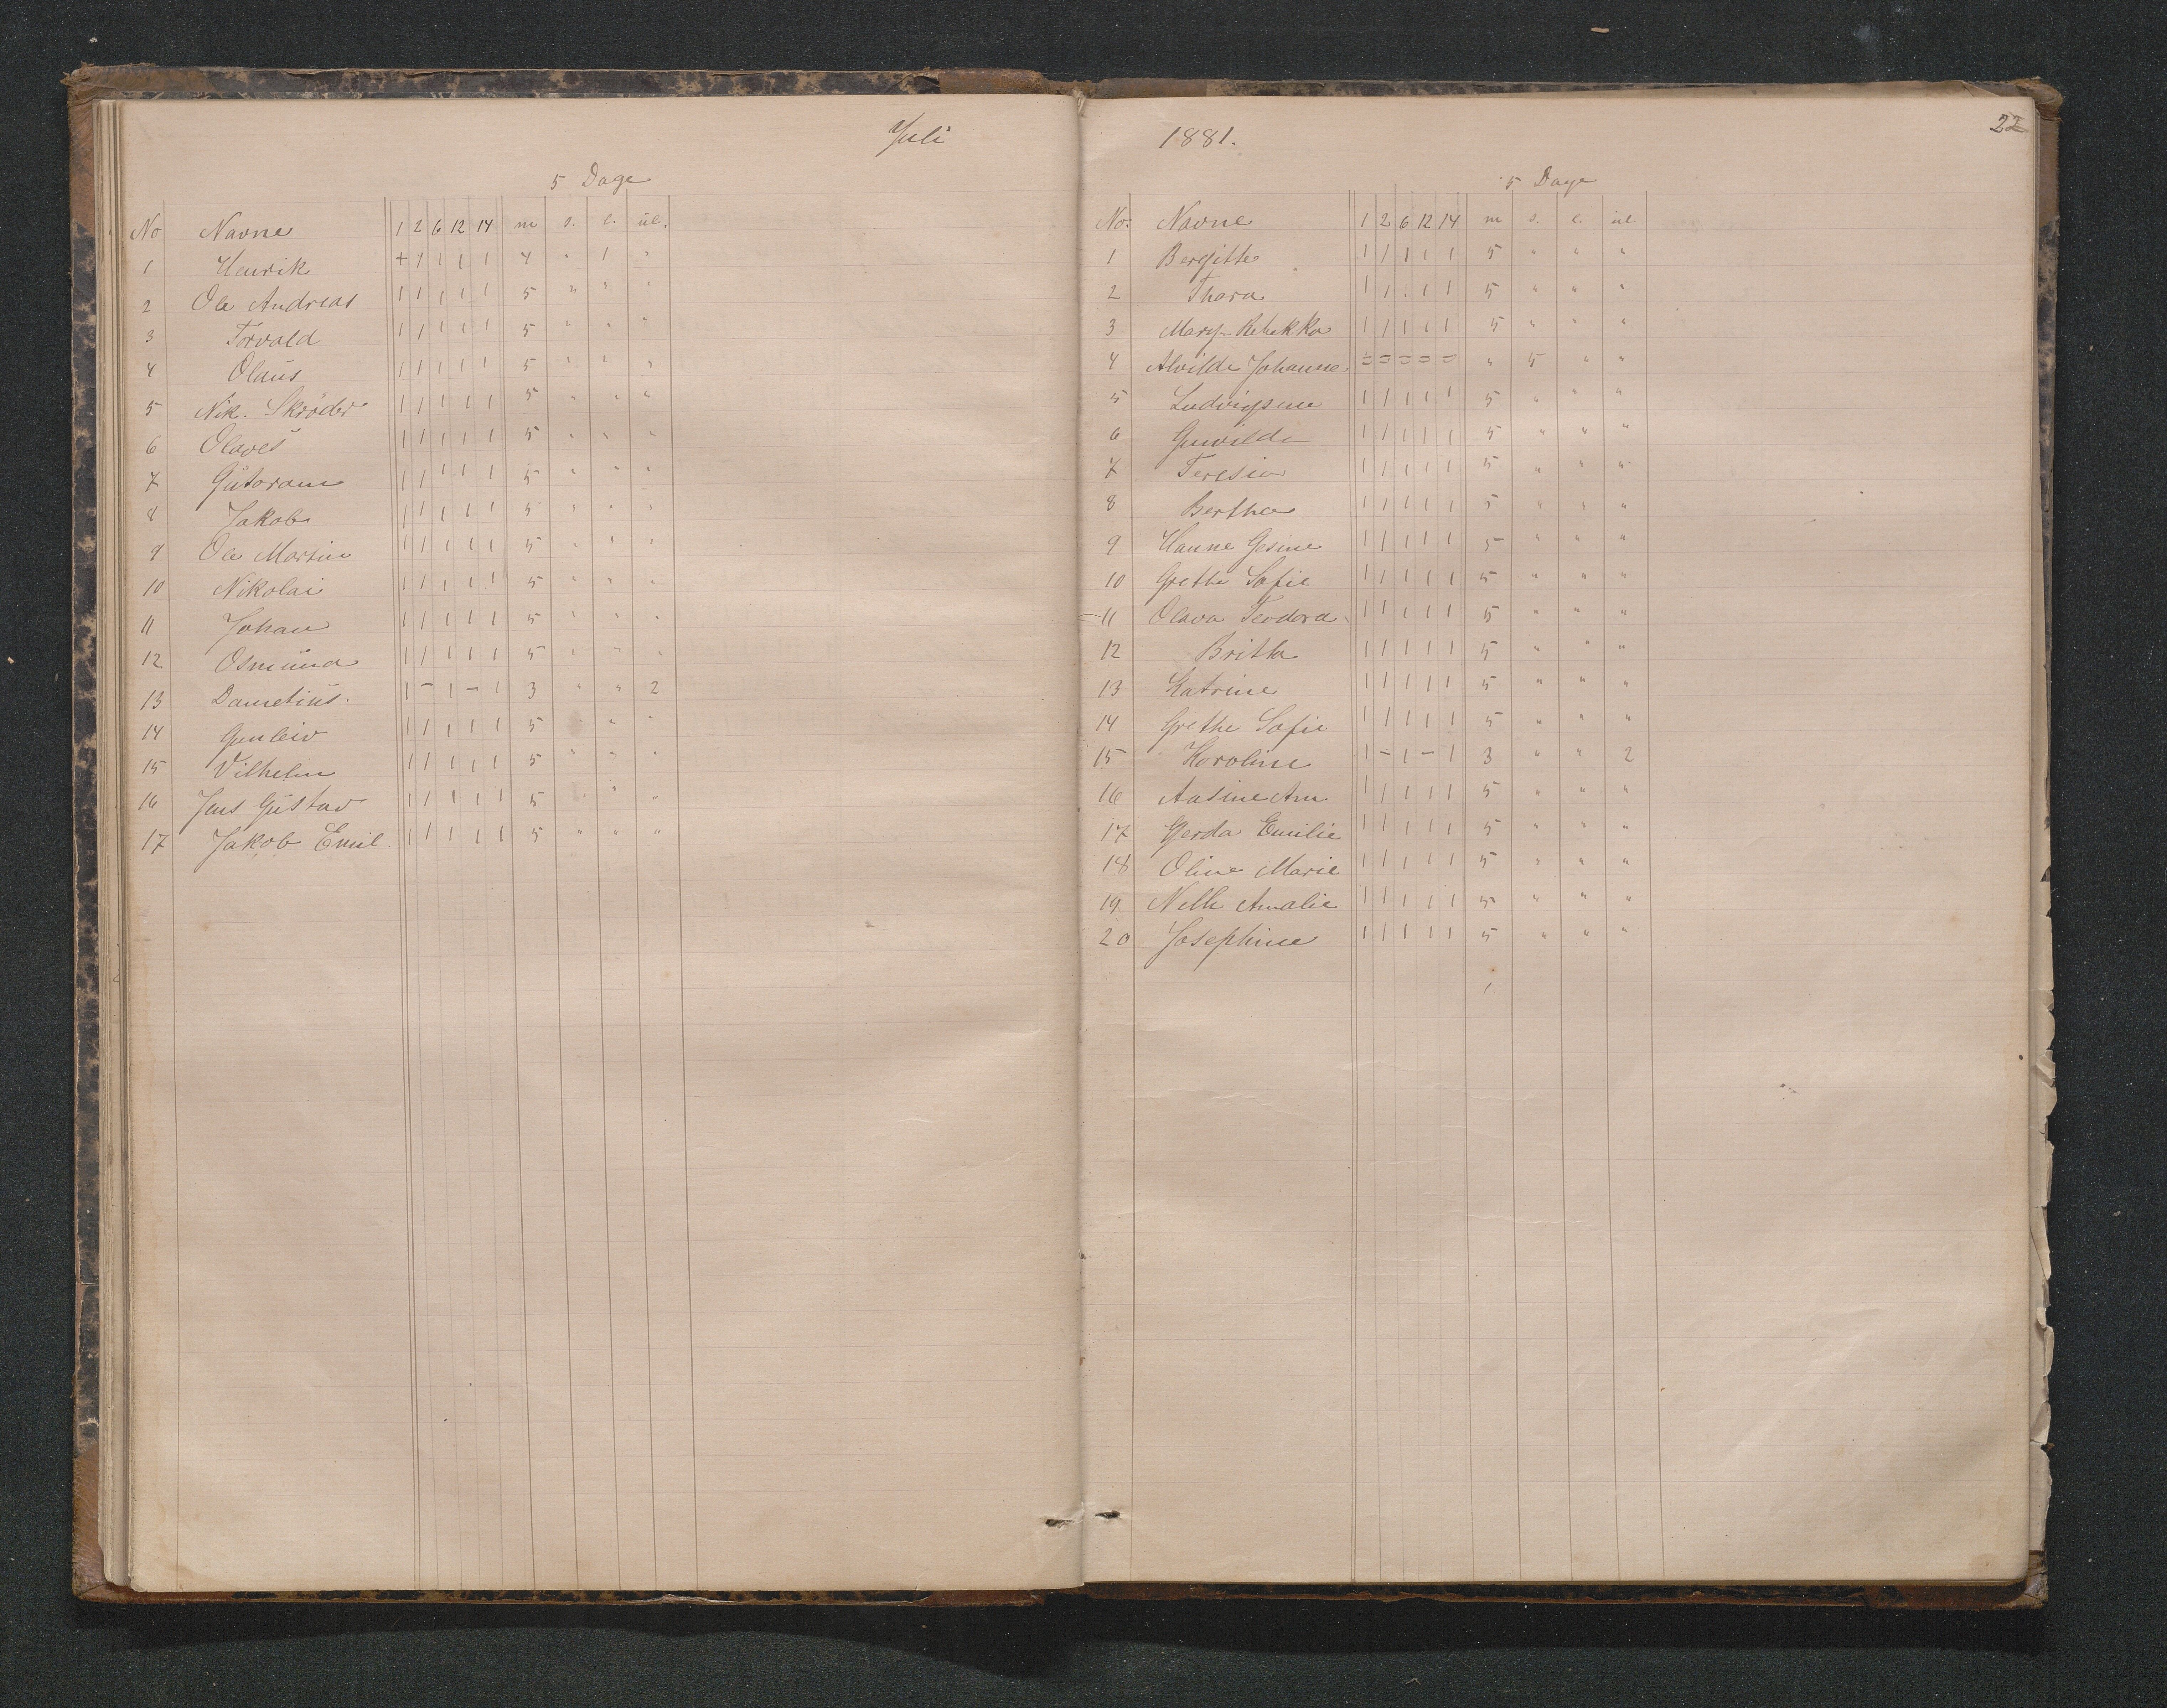 Juli
5 Dage
No Navne 1 2 6 12 14 m s. l. ul.
1 Henrik + 1 1 1 1 4 " 1 "
2 Ole Andreas 1 1 1 1 1 5 " " "
3 Torvald 1 1 1 1 1 5 " " "
4 Olaus 1 1 1 1 1 5 " " "
5 Nik. Skrøder 1 1 1 1 1 5 " " "
6 Olaves 1 1 1 1 1 5 " " "
7 Gutoram 1 1 1 1 1 5 " " "
8 Jakob 1 1 1 1 1 5 " " "
9 Ole Martin 1 1 1 1 1 5 " " "
10 Nikolai 1 1 1 1 1 5 " " "
11 Johan 1 1 1 1 1 5 " " "
12 Osmund 1 1 1 1 1 5 " " "
13 Dametius. 1 - 1 - 1 3 " " 2
14 Gunleiv 1 1 1 1 1 5 " "
15 Vilhelm 1 1 1 1 1 5 " " "
16 Jens Gustav 1 1 1 1 1 5 " " "
17 Jakob Emil. 1 1 1 1 1 5 " " "
1881.
22
5 Dage
No. Navne 1 2 6 12 14 m s. l. ul
1 Bergitte 1 1 1 1 1 5 " " "
2 Thora 1 1 1 1 1 5 " " "
3 Mary Rebekka 1 1 1 1 1 5 " " "
4 Alvilde Johanne = = = = = " 5 " "
5 Ludvigsine 1 1 1 1 1 5 " " "
6 Gunvilda 1 1 1 1 1 5 " " "
7 Teresia 1 1 1 1 1 5 " " "
8 Bertha 1 1 1 1 1 5 " " "
9 Hanne Gesine 1 1 1 1 1 5 " " "
10 Grethe Sofie 1 1 1 1 1 5 " " "
11 Olava Teodora 1 1 1 1 1 5 " " "
12 Britha 1 1 1 1 1 5 " " "
13 Katrine 1 1 1 1 1 5 " " "
14 Grethe Sofie 1 1 1 1 1 5 " " "
15 Koroline 1 - 1 - 1 3 " " 2
16 Aasine Am. 1 1 1 1 1 5 " " "
17 Gerda Emilie 1 1 1 1 1 5 " " "
18 Oline Marie 1 1 1 1 1 5 " " "
19. Amalie 1 1 1 1 1 5 " " "
20 Josephine 1 1 1 1 1 5 " " "